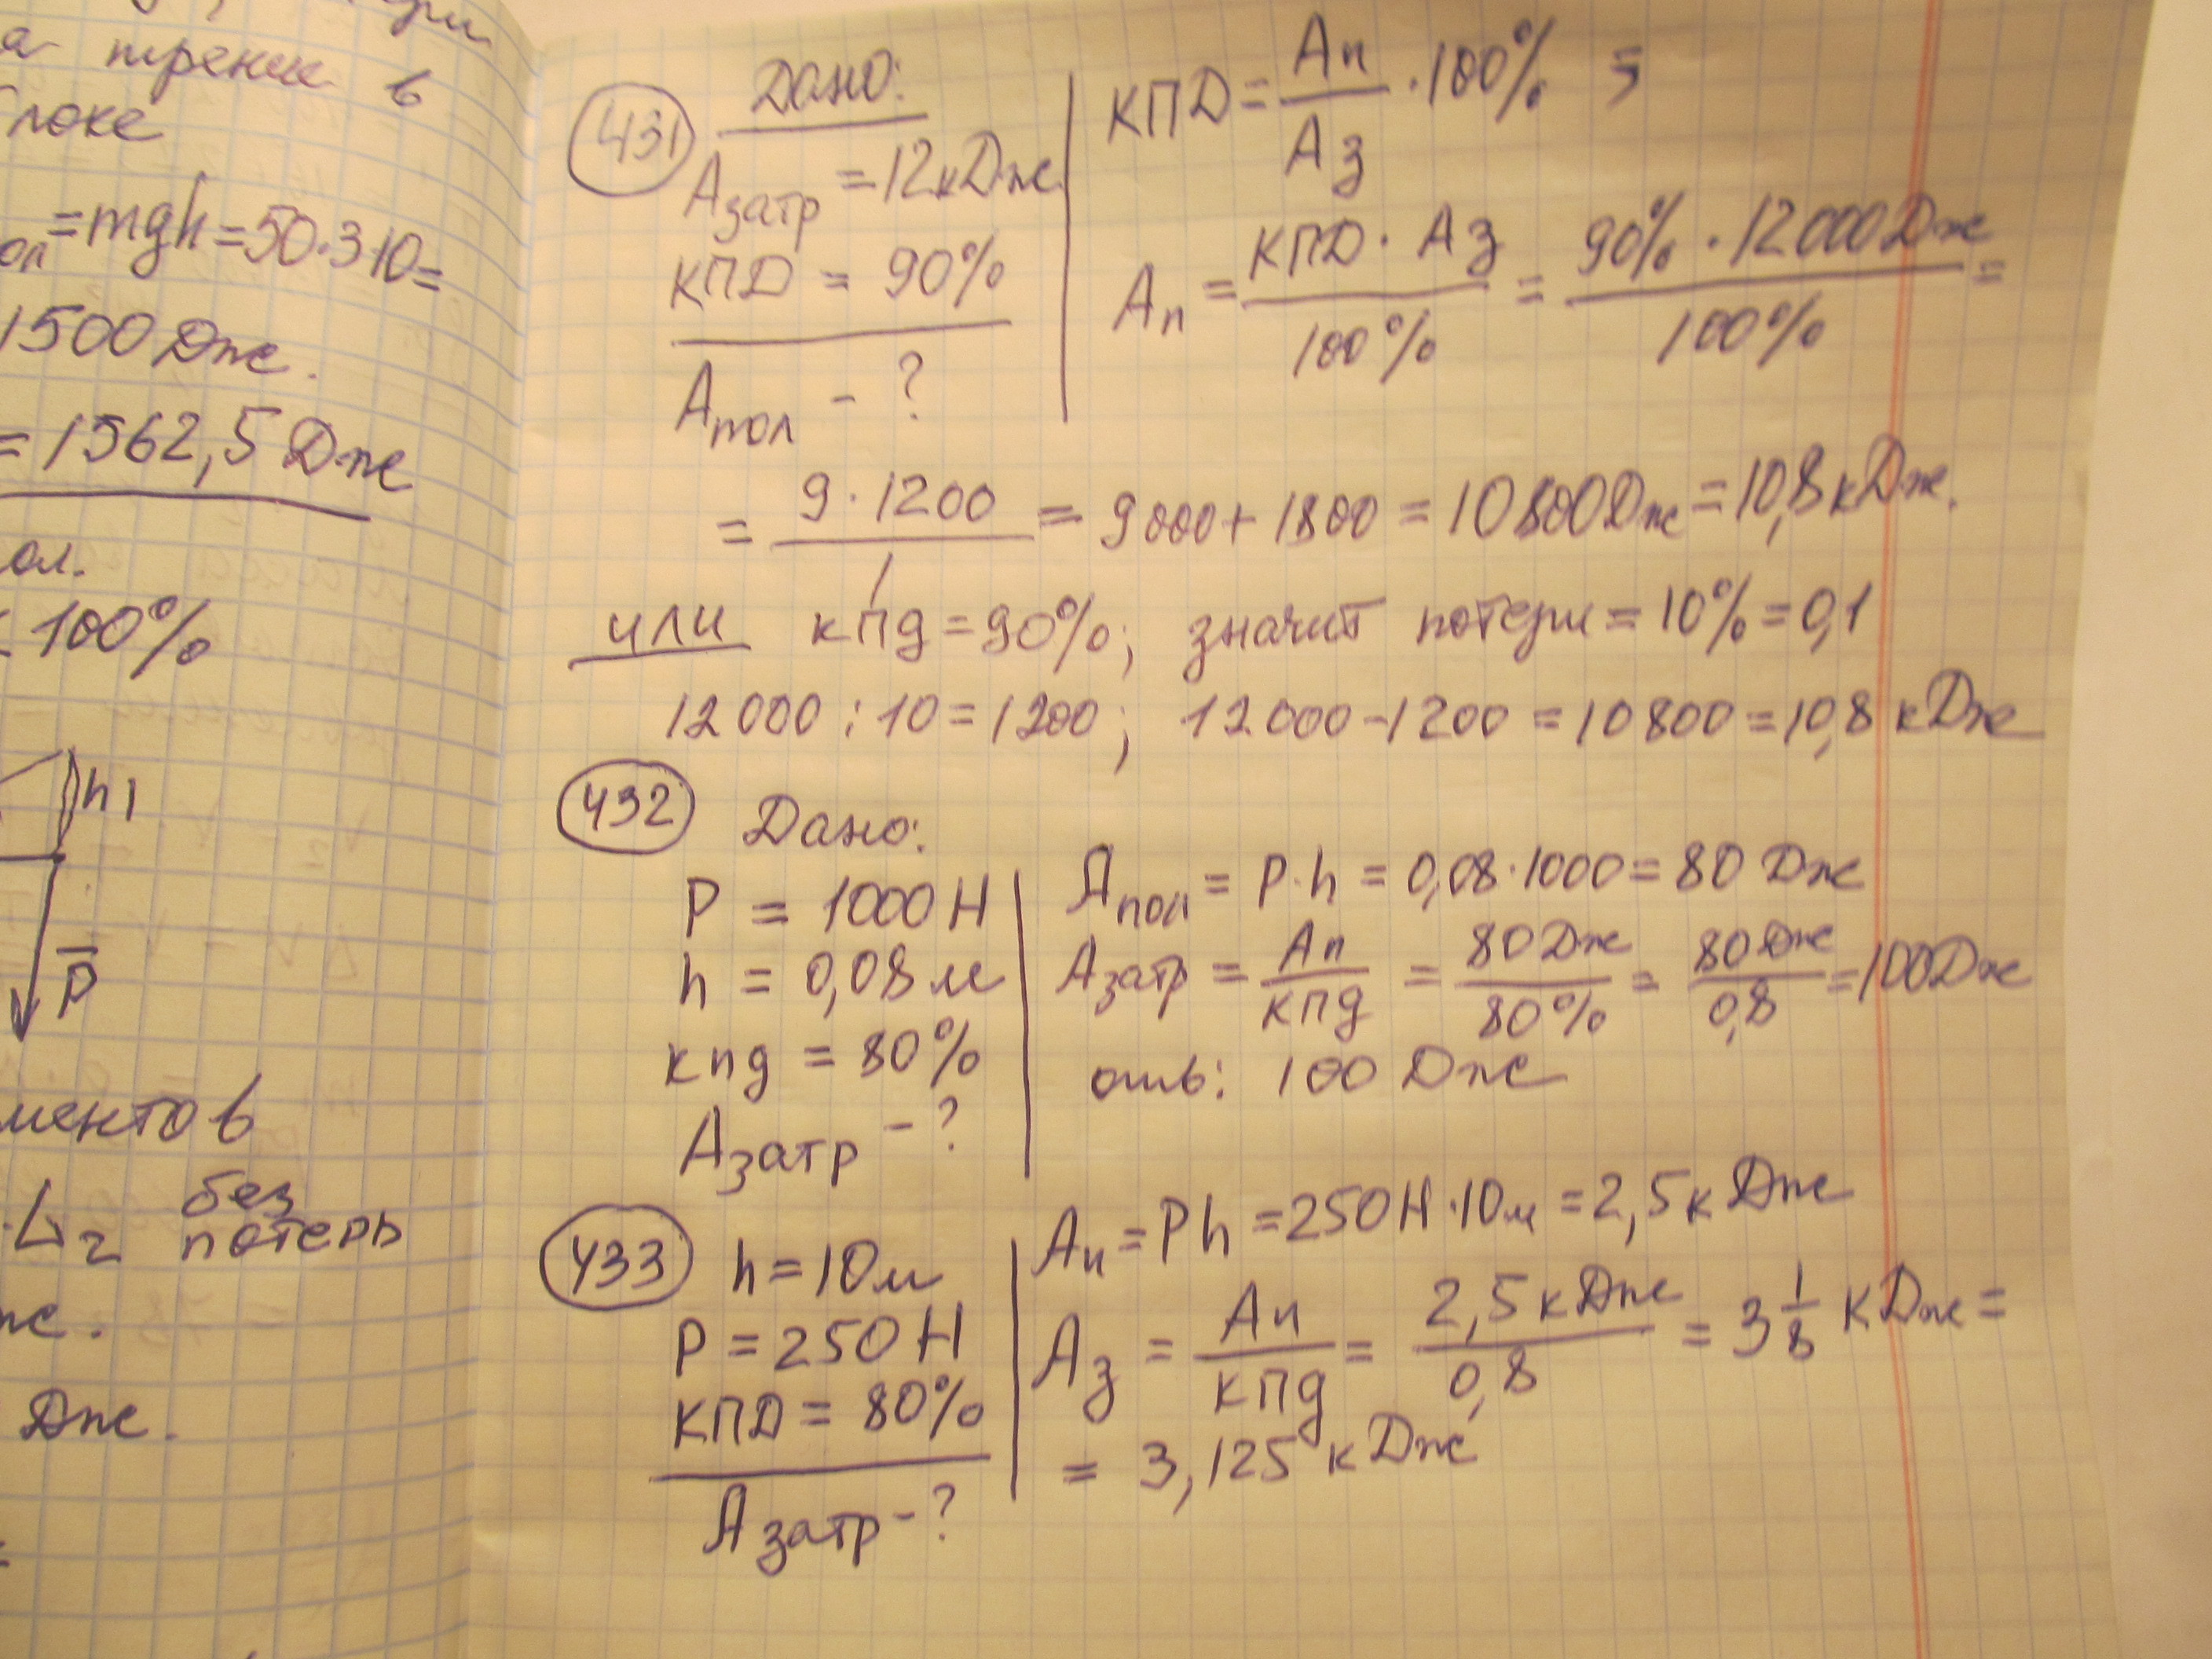 а трение в
блоке
=mgh=50·3·10=
1500 Дж.
= 1562,5 Дж
ол.
100%
h1
P
ментов
L2 без
потерь
Дж.
431 Дано:
Aзатр = 12кДж
КПД = 90%
Aпол - ?
КПД = Aп / Aз · 100% ⇒
Aп = КПД · Aз / 100% = 90% · 12000Дж / 100% =
= 9 · 1200 / 1 = 9000 + 1800 = 10800Дж = 10,8 кДж.
или кпд = 90%; значит потери = 10% = 0,1
12000 : 10 = 1200; 12000 - 1200 = 10800 = 10,8 кДж
432 Дано:
P = 1000 Н
h = 0,08 м
кпд = 80%
Aзатр - ?
Aпол = P·h = 0,08·1000 = 80 Дж
Aзатр = Aп / кпд = 80 Дж / 80% = 80 Дж / 0,8 = 100Дж
отв: 100 Дж
433 h = 10м
P = 250 Н
КПД = 80%
Aзатр - ?
Aп = Ph = 250Н·10м = 2,5 кДж
Aз = Aп / кпд = 2,5 кДж / 0,8 = 3 1/8 кДж =
= 3,125 кДж